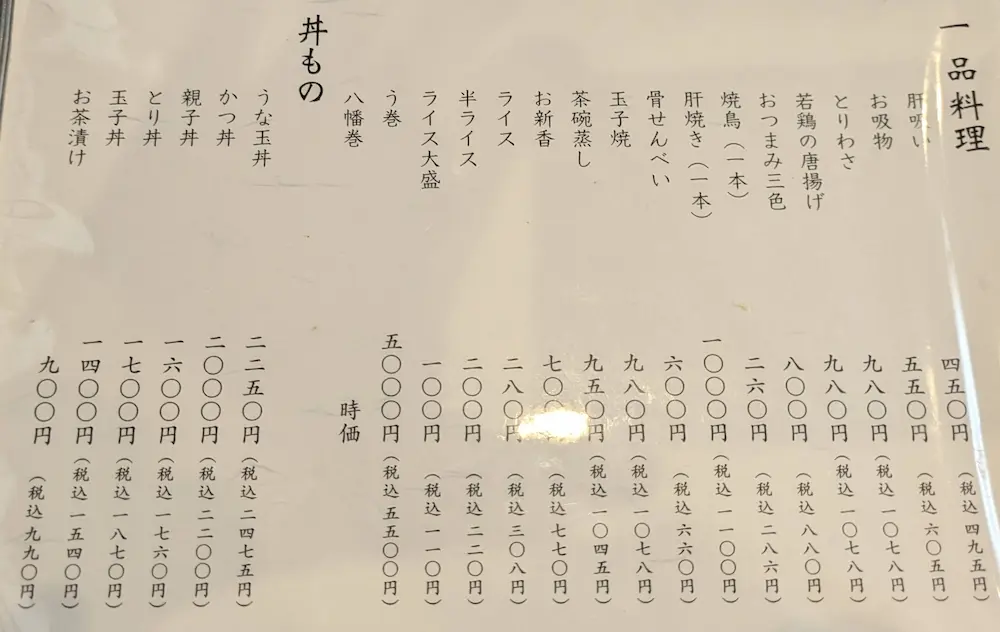 一品料理
肝吸い 四五〇円（税込 四九五円）
お吸物 五五〇円（税込 六〇五円）
とりわさ 九八〇円（税込 一〇七八円）
若鶏の唐揚げ 九八〇円（税込 一〇七八円）
おつまみ三色 八〇〇円（税込 八八〇円）
焼鳥（一本） 二六〇円（税込 二八六円）
肝焼き（一本） 一〇〇〇円（税込 一一〇〇円）
骨せんべい 六〇〇円（税込 六六〇円）
玉子焼 九八〇円（税込 一〇七八円）
茶碗蒸し 九五〇円（税込 一〇四五円）
お新香 七〇〇円（税込 七七〇円）
ライス 二八〇円（税込 三〇八円）
半ライス 二〇〇円（税込 二二〇円）
ライス大盛 一〇〇円（税込 一一〇円）
う巻 五〇〇〇円（税込 五五〇〇円）
八幡巻 時価
丼もの
うな玉丼 二二五〇円（税込 二四七五円）
かつ丼 二〇〇〇円（税込 二二〇〇円）
親子丼 一六〇〇円（税込 一七六〇円）
とり丼 一七〇〇円（税込 一八七〇円）
玉子丼 一四〇〇円（税込 一五四〇円）
お茶漬け 九〇〇円（税込 九九〇円）